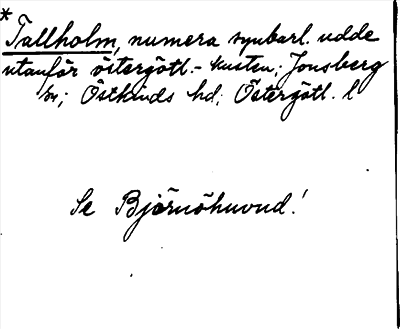 * Tallholm, numera synbarl. udde
utanför östergötl.- kusten; Jonsberg
sn; Östkinds hd; Östergötl. l
Se Björnöhuvud!